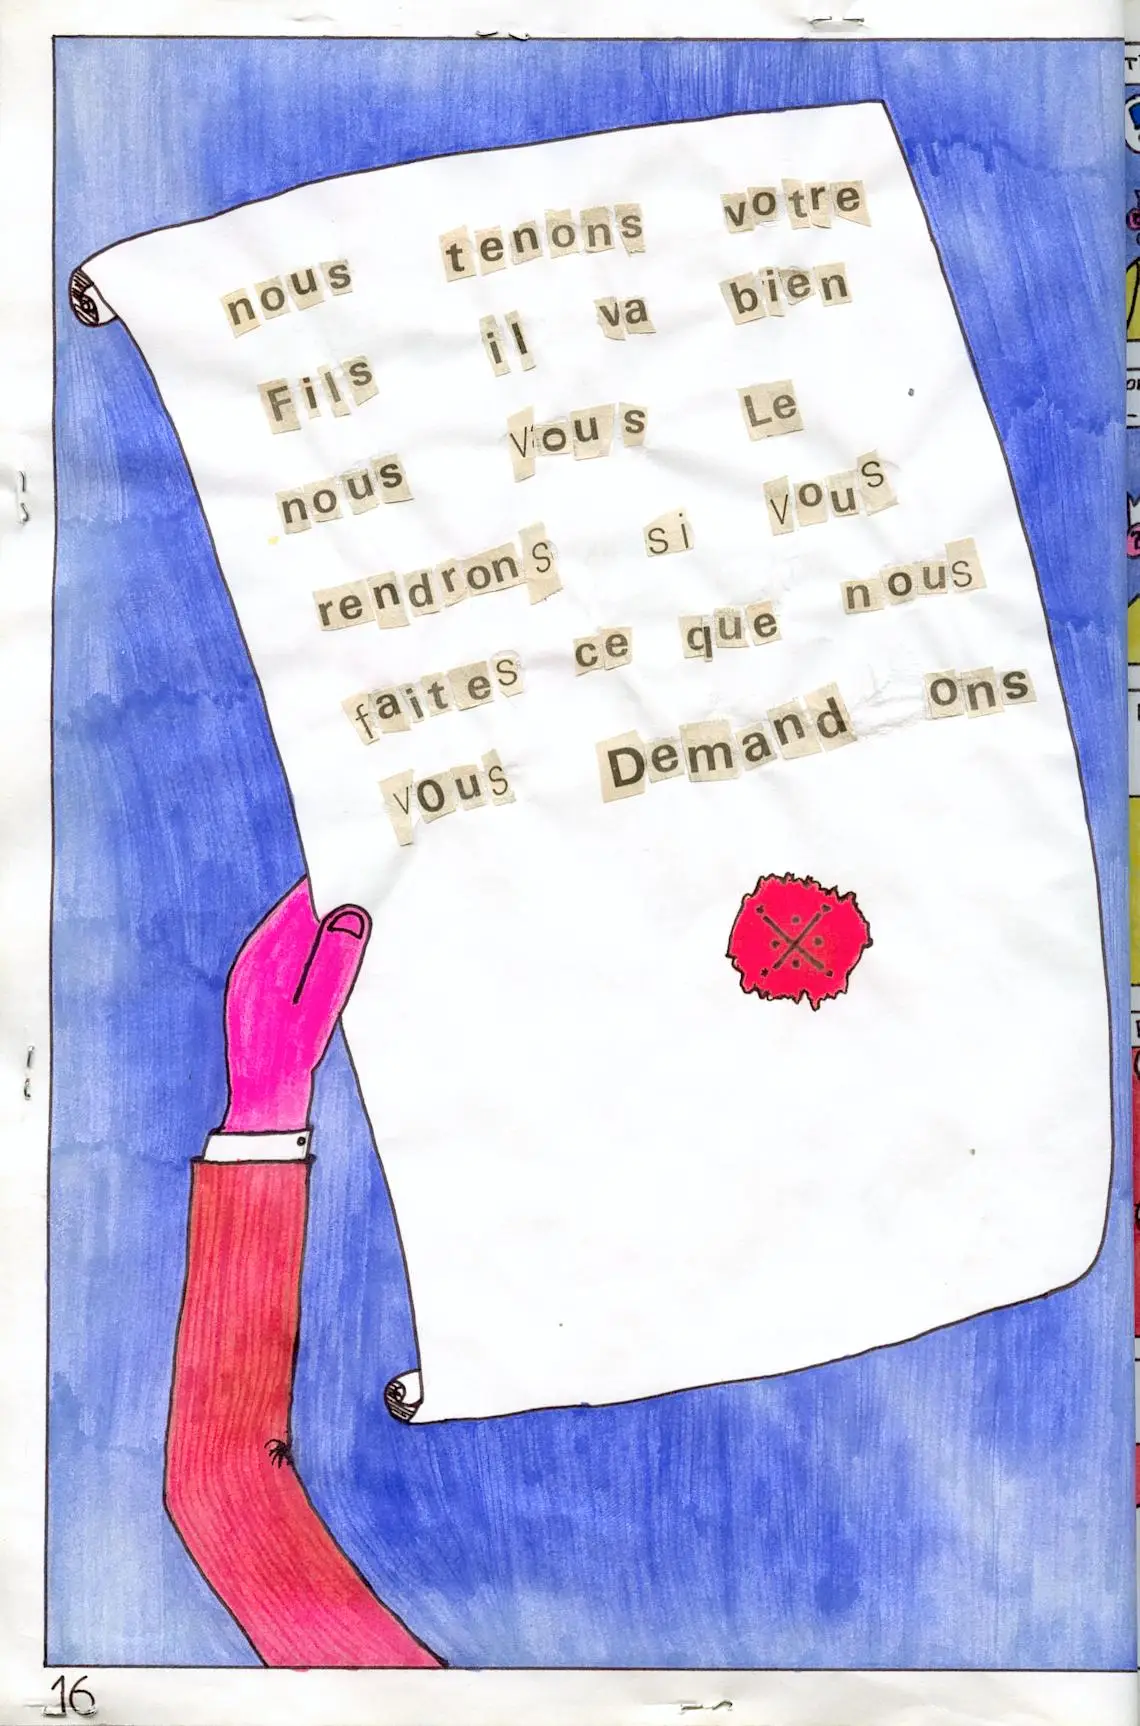 nous tenons votre
Fils il va bien
nous Vous Le
rendrons si vous
faites ce que nous
vous Demand ons
16